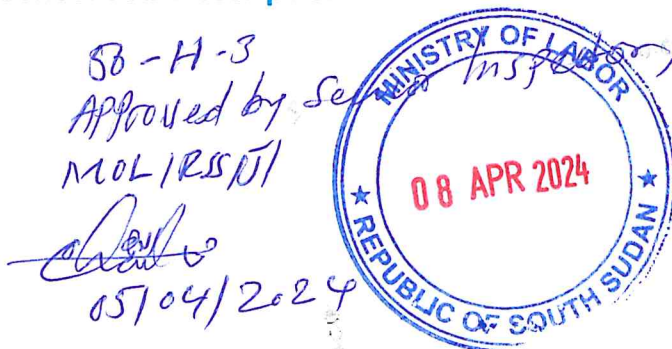 Approved by Senior Inspector
MOL/RSS/
05/04/2024
MINISTRY OF LABOR
08 APR 2024
REPUBLIC OF SOUTH SUDAN